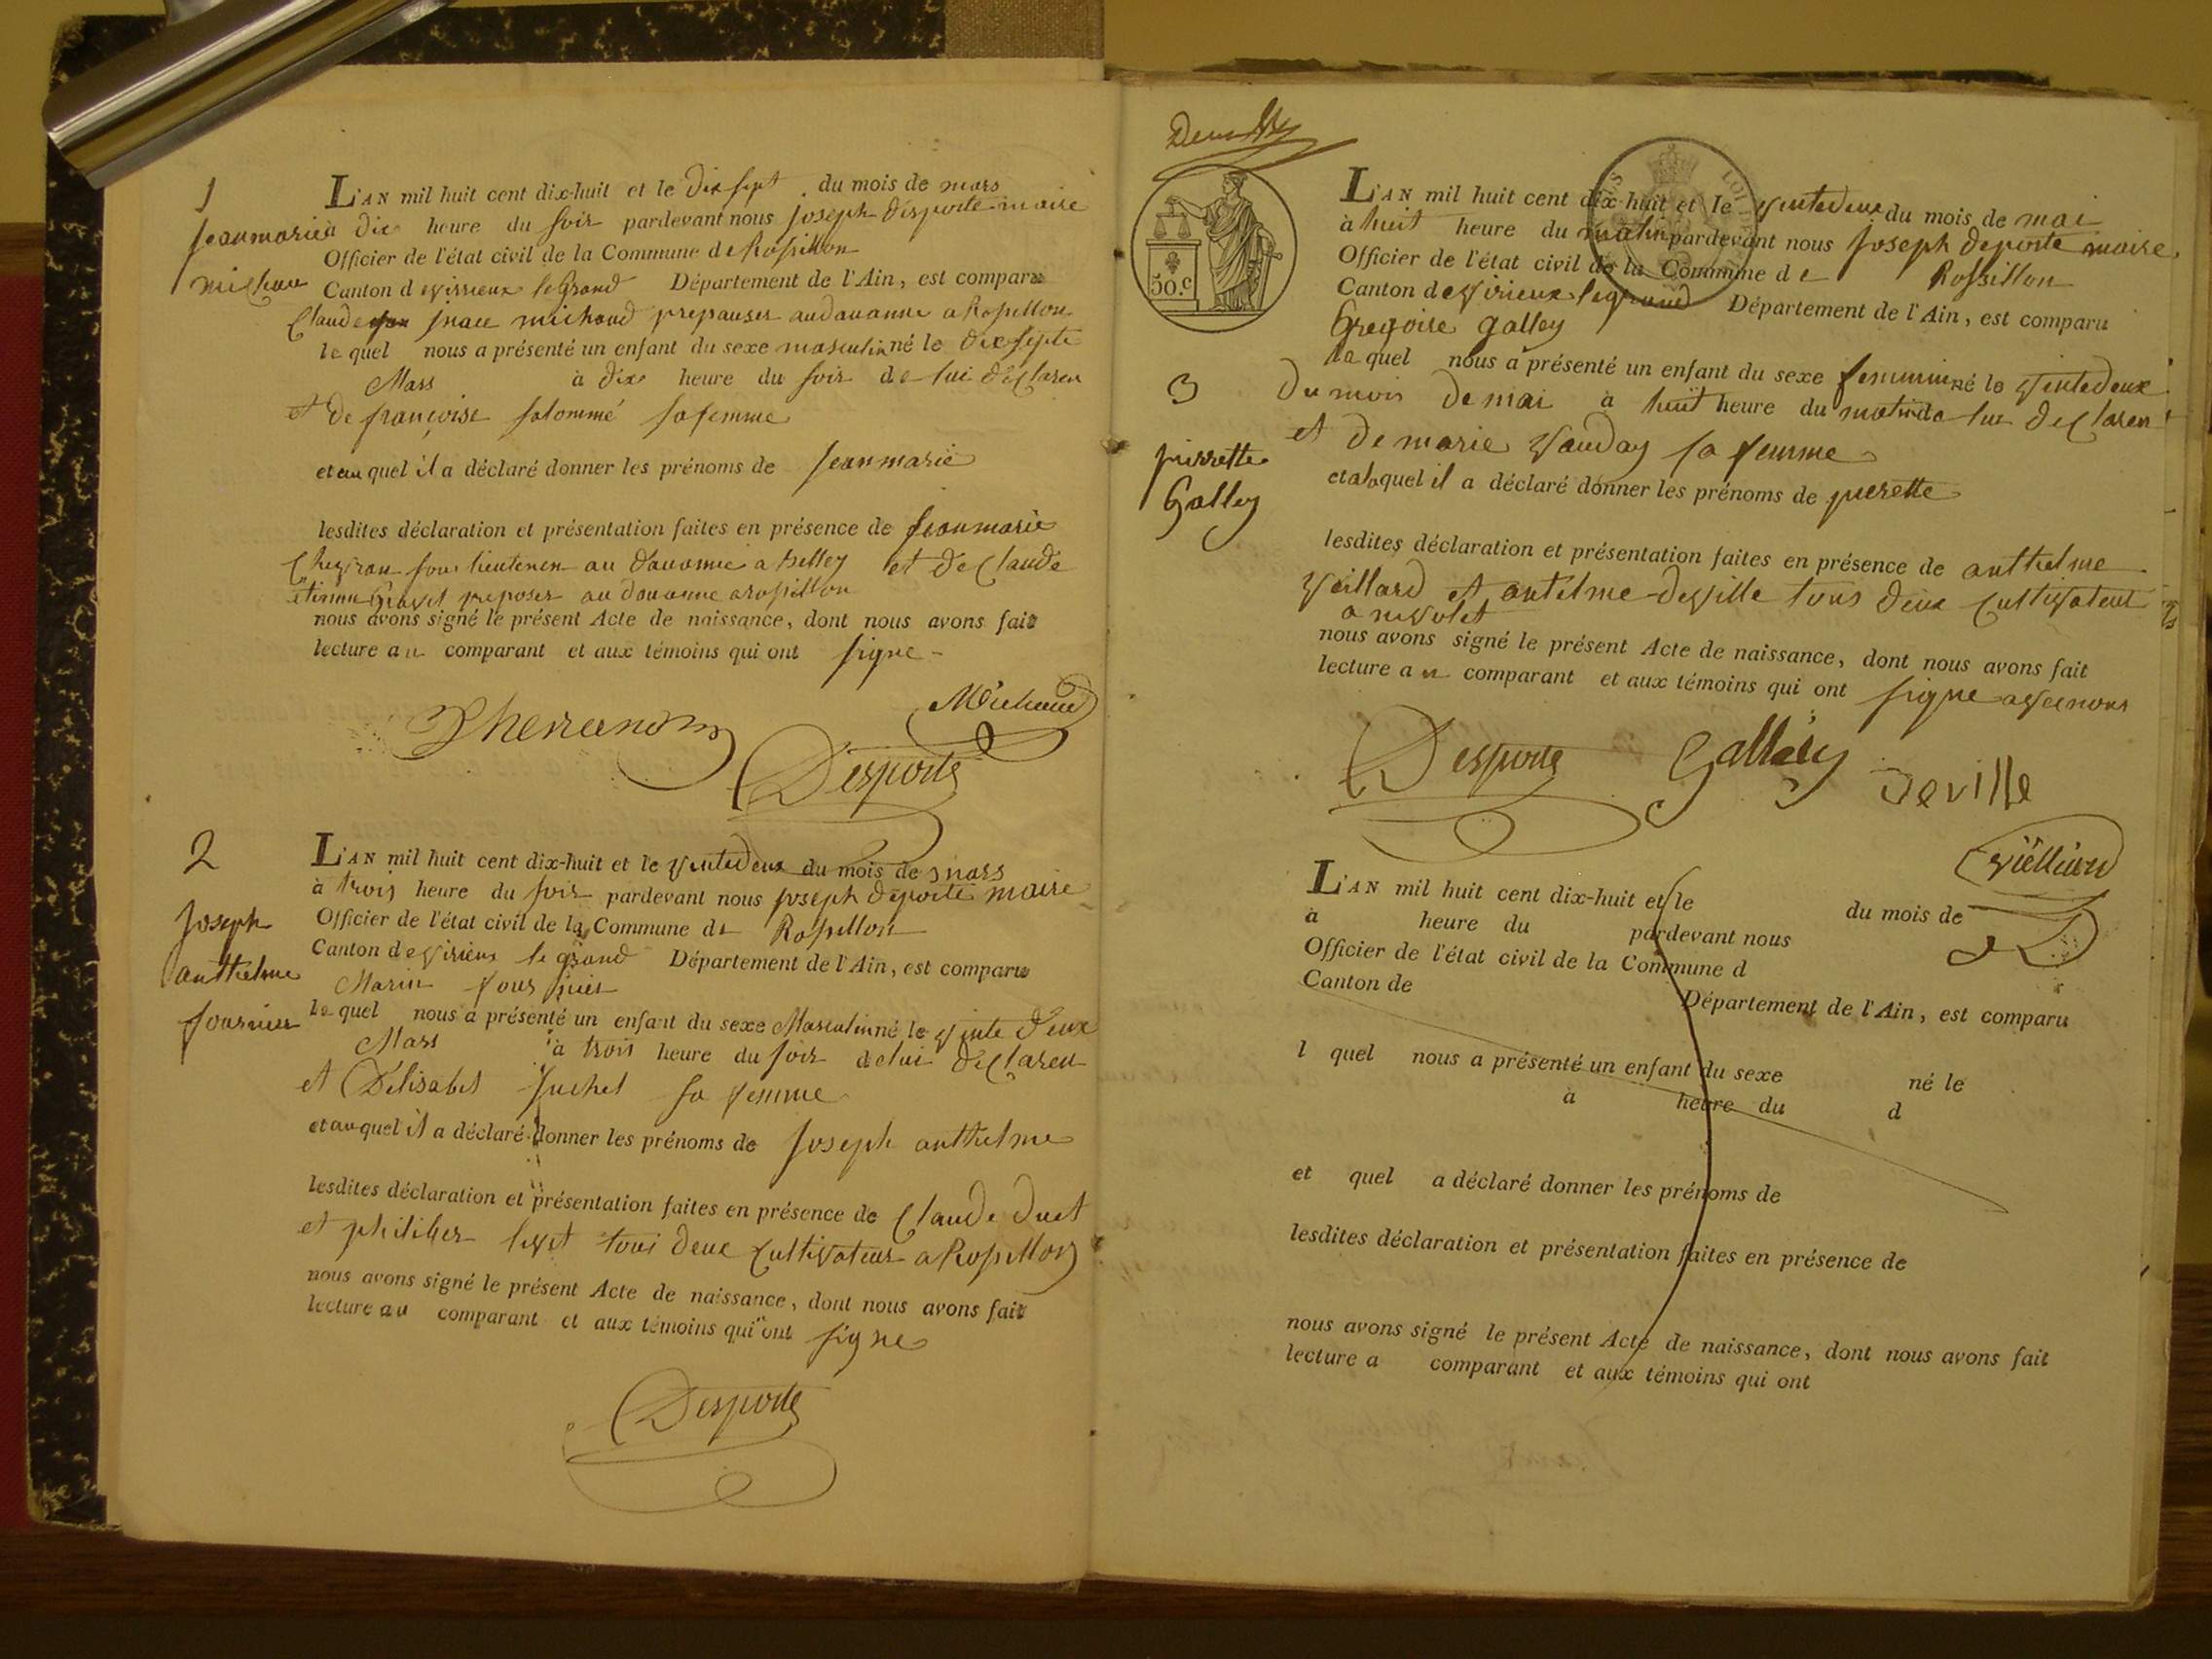 1
Jeanmarie
michau
L'AN mil huit cent dix-huit et le dix sept du mois de mars
à dix heure du soir pardevant nous Joseph desporte maire
Officier de l'état civil de la Commune de Rossillon
Canton de virieux le grand Département de l'Ain, est comparu
Claude michaud a Rossillon
le quel nous a présenté un enfant du sexe masculin né le dix septe
Mars à dix heure du soir de lui déClaren
et de françoise salommé sa femme
et au quel il a déclaré donner les prénoms de Jeanmarie
lesdites déclaration et présentation faites en présence de Jeanmarie
sous lieutenen au a belley et de Claude
preposer au douanne a rossillon
nous avons signé le présent Acte de naissance, dont nous avons fait
lecture au comparant et aux témoins qui ont signe
Michaud
Desporte
2
Joseph
anthelme
fournier
L'AN mil huit cent dix-huit et le vintedeux du mois de mars
à trois heure du soir pardevant nous joseph deporte maire
Officier de l'état civil de la Commune de Rossillon
Canton de virieux le grand Département de l'Ain, est comparu
Marin
le quel nous a présenté un enfant du sexe Masculin né le vinte deux
Mars à trois heure du soir de lui déClaren
et D'élisabet Juchet sa femme
et au quel il a déclaré donner les prénoms de Joseph anthelme
lesdites déclaration et présentation faites en présence de Claude
et philiber tous deux Cultivateur a Rossillon
nous avons signé le présent Acte de naissance, dont nous avons fait
lecture au comparant et aux témoins qui ont signe
Desporte
50.c
3
pierrette
Galley
L'AN mil huit cent dix-huit et le vintedeux du mois de mai
à huit heure du matin pardevant nous Joseph deporte maire
Officier de l'état civil de la Commune de Rossillon
Canton de virieux legrand Département de l'Ain, est comparu
Gregoire galley
le quel nous a présenté un enfant du sexe feminin né le vintedeux
du mois de mai à huit heure du matin de lui déClaren
et de marie vauday sa femme
et a la quel il a déclaré donner les prénoms de pierette
lesdites déclaration et présentation faites en présence de anthelme
veillard et antelme deville tous deux Cultivateur
nous avons signé le présent Acte de naissance, dont nous avons fait
lecture au comparant et aux témoins qui ont signe avec nous
Desporte Galley Deville
L'AN mil huit cent dix-huit et le du mois de
à heure du pardevant nous
Officier de l'état civil de la Commune d
Canton de Département de l'Ain, est comparu
l quel nous a présenté un enfant du sexe né le
à heure du d
et quel a déclaré donner les prénoms de
lesdites déclaration et présentation faites en présence de
nous avons signé le présent Acte de naissance, dont nous avons fait
lecture a comparant et aux témoins qui ont